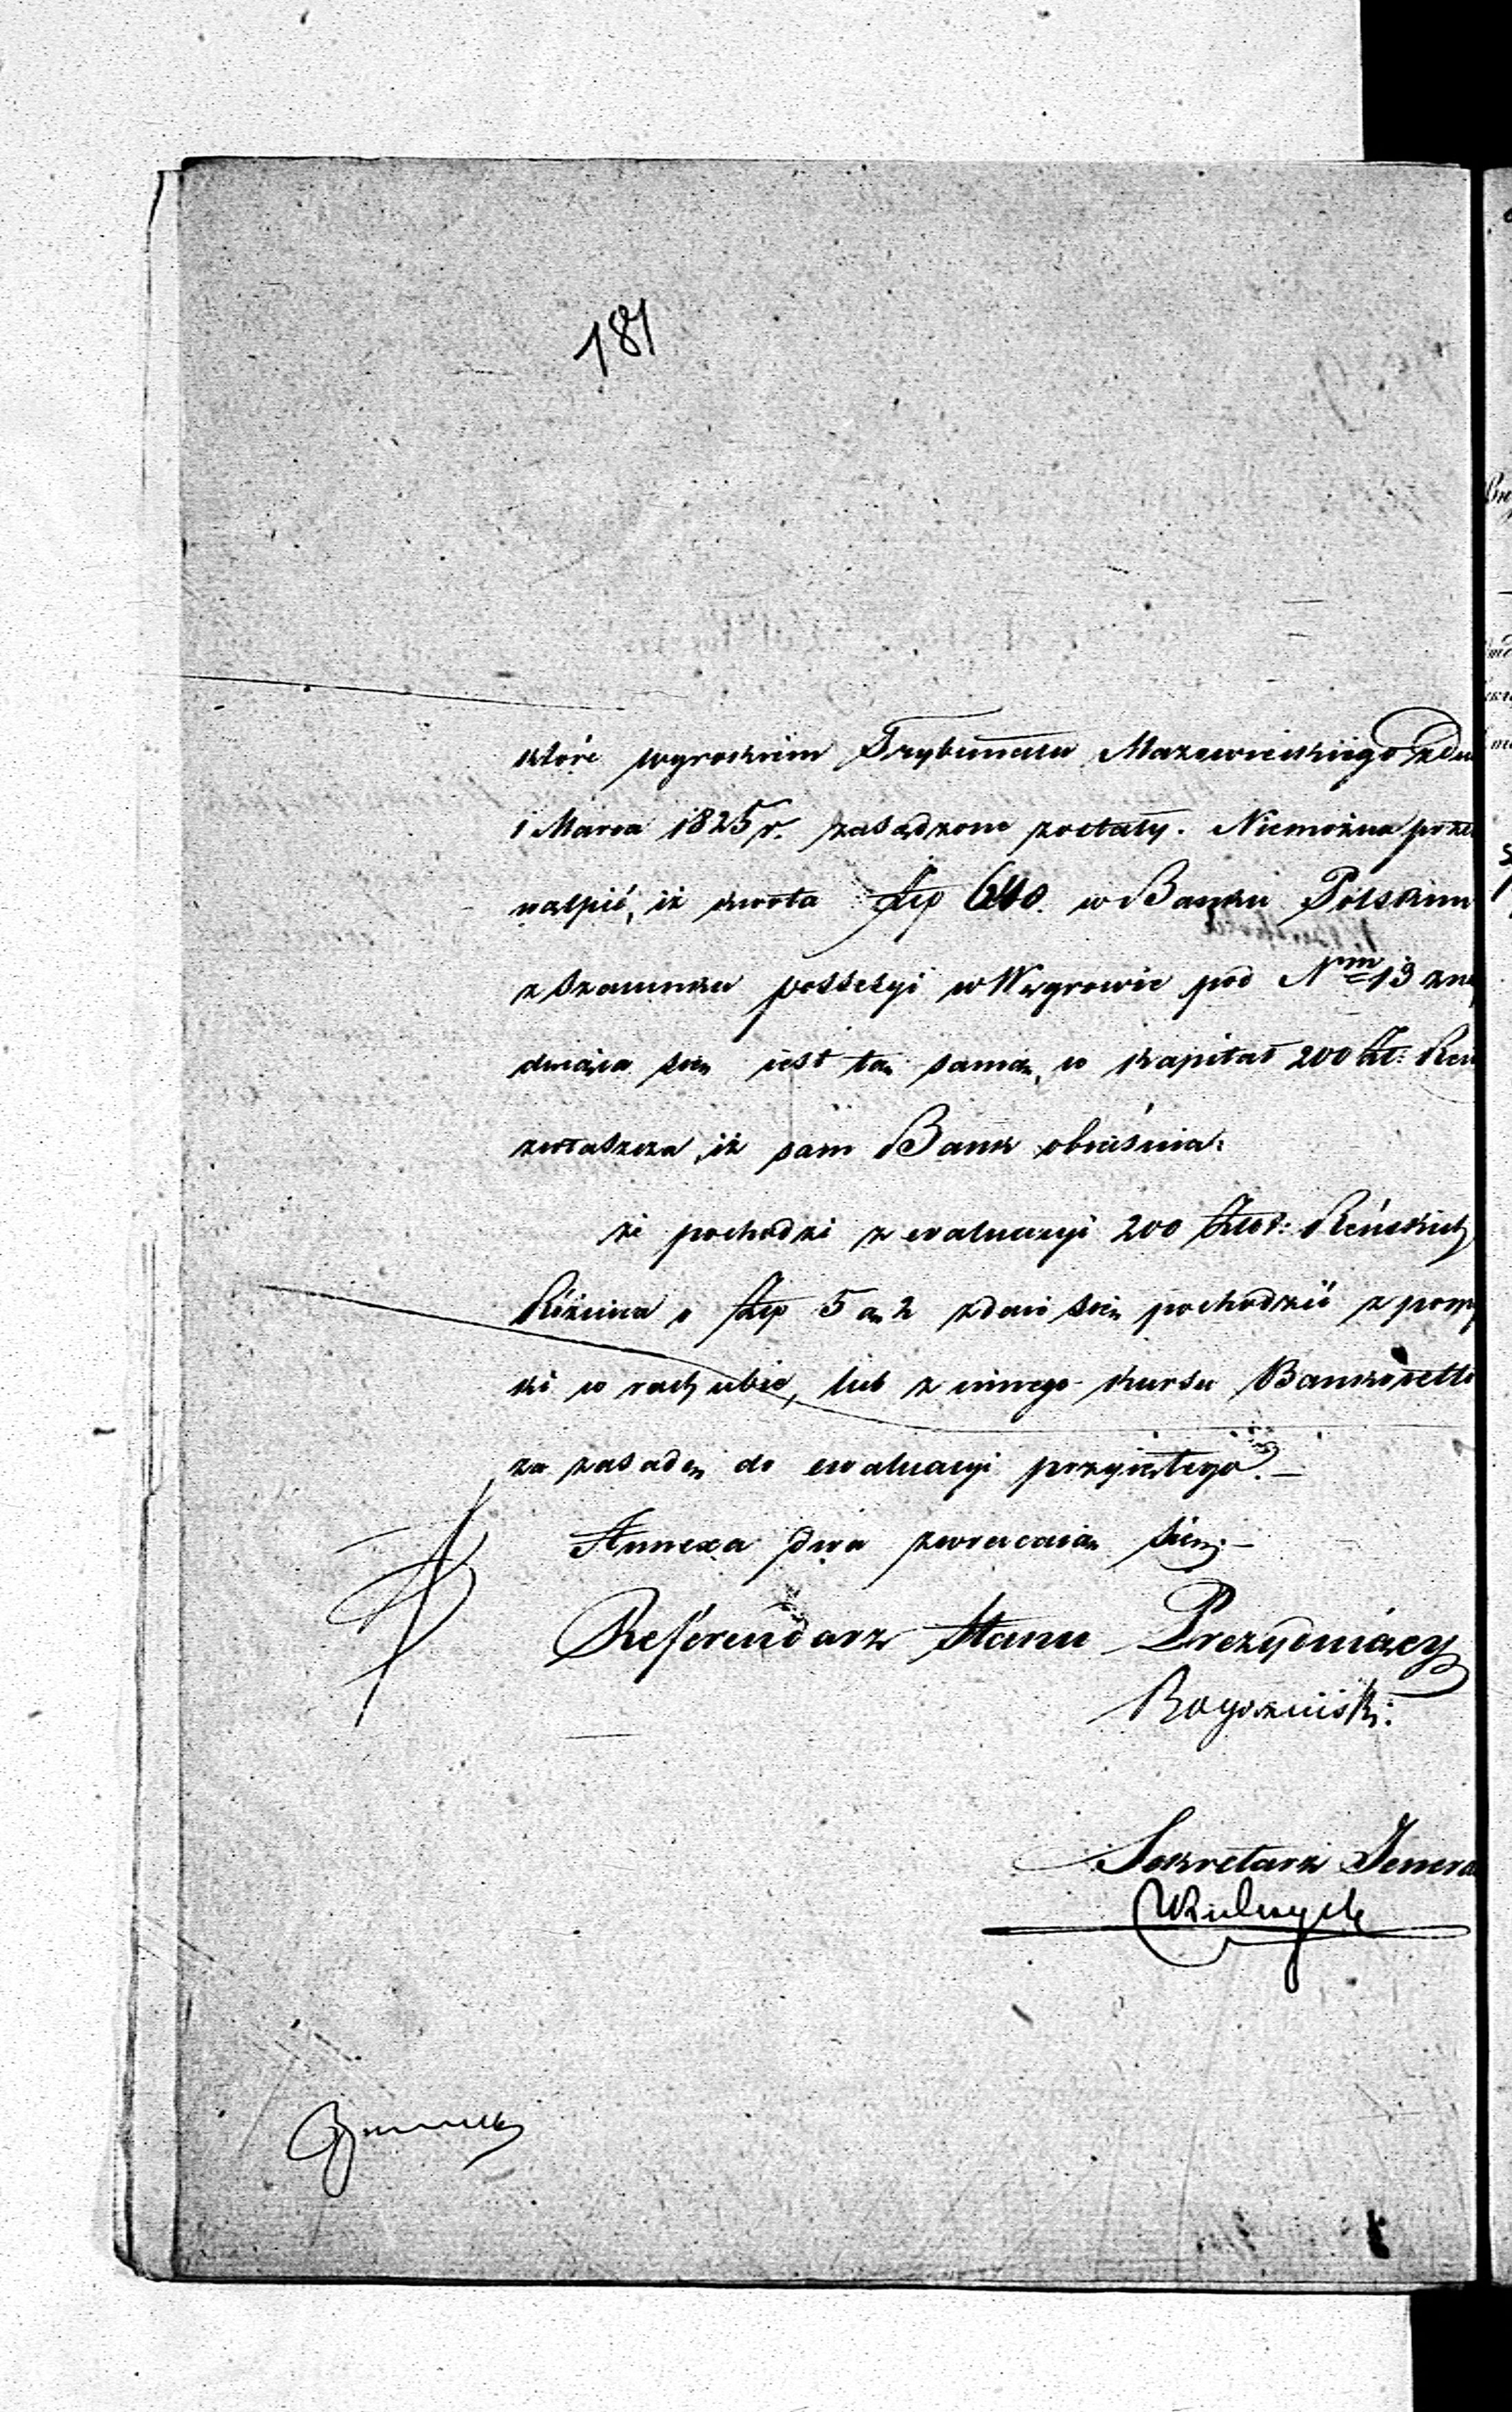 181
które wyrokiem Trybunału Mazowieckiego z dn
1 Marca 1825 r. zasądzone zostały. Niemożna prze
wątpić, iż kwota Złp 640. w Banku Polskim
z szacunku possesyi w Węgrowie pod Nrm 13 zna
duiąca się iest tą samą, co kapitał 200 Zł: Reń
zwłaszcza, iż sam Bank obiaśnia:
że pochodzi z ewaluacyi 200 Złot: Reńskich
Różnica o Złp 5 a 2 zdaie się pochodzić z pomy
ki w rachubie, lub z innego kursu Bankocetli
za zasadę do ewaluacyi przyiętego. —
Annexa dwa zwracaią się. —
Referendarz Stanu Prezyduiący
Sekretarz Jenera